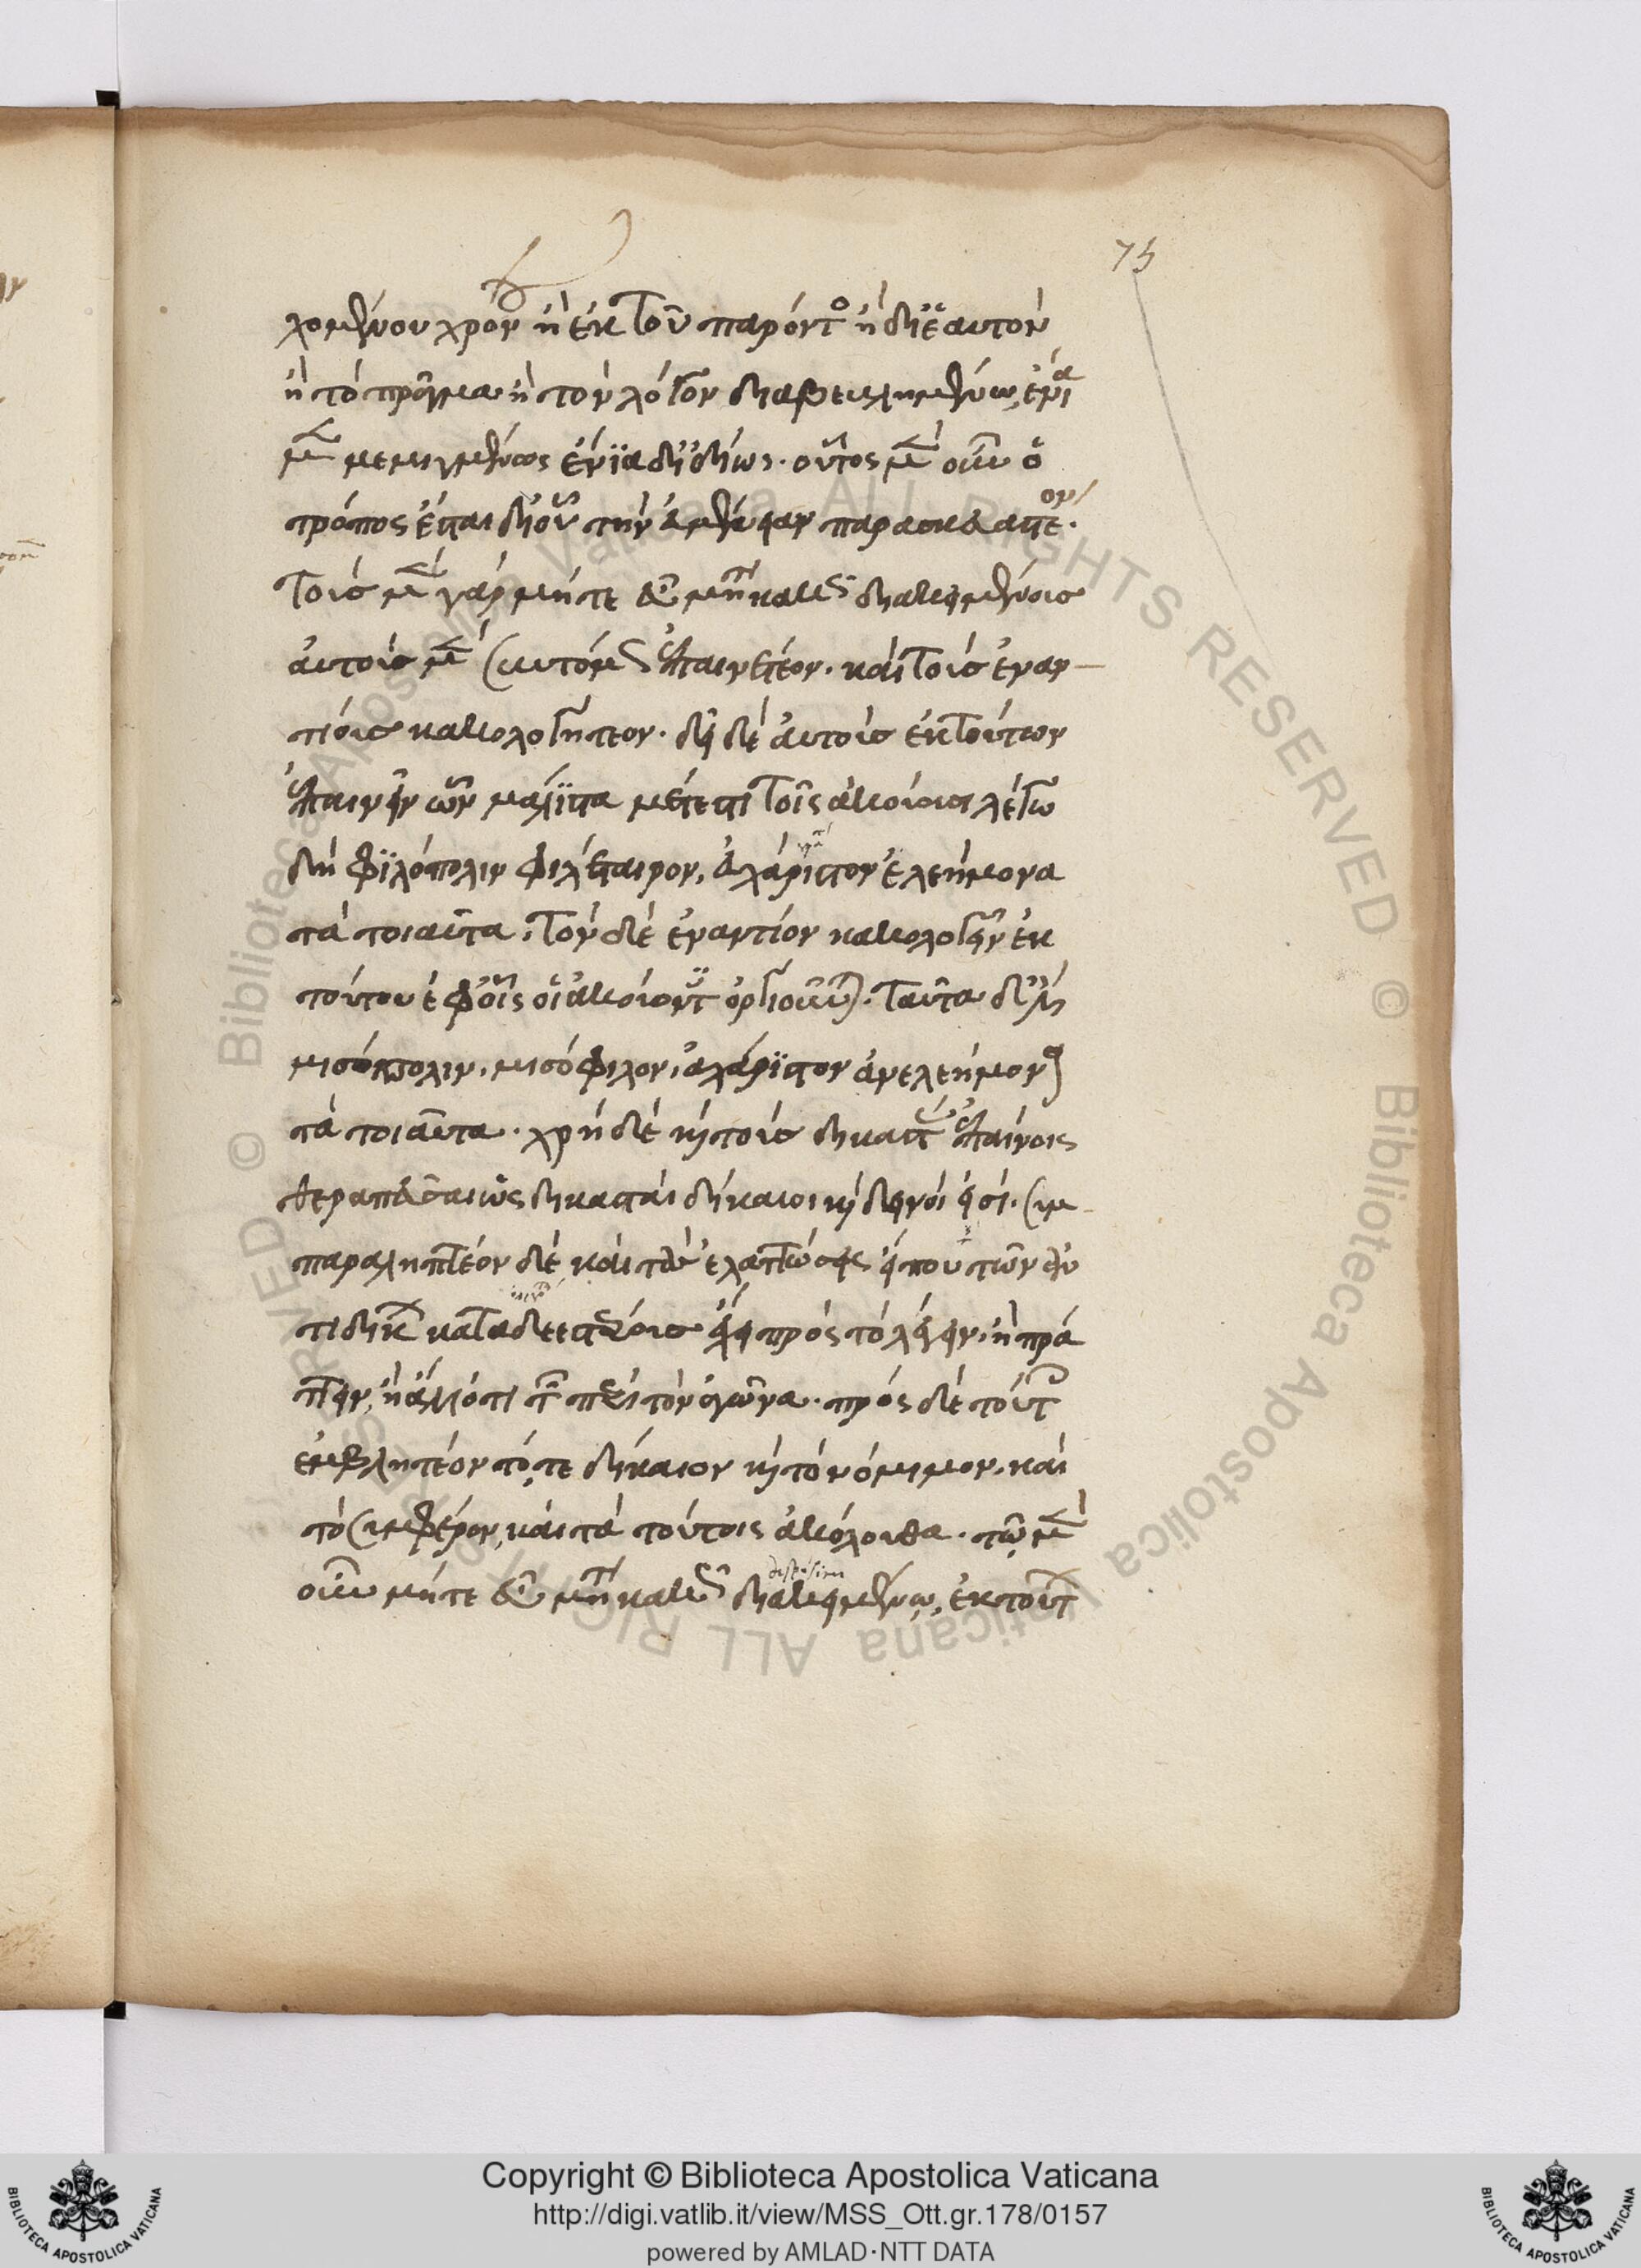 73
χομένου χρόν ἢ ἐκ τοῦ παρόντο ἢ δι' ἑαυτὸν
ἢ τὸ πρᾶγμα ἢ τὸν λόγον διαβεβλημένω, ἔνια
μὲν μεμιγμένως ἔνια δ' ἰδίως. οὗτος μὲν οὖν ὁ
τρόπος ἐστι δι' οὗ τὴν εὐμένειαν παρασκευαστέον.
τοῖς μὲν γὰρ μήτε εὖ μήτε κακῶς διακειμένοις
αὐτοῖς μὲν συντόμως ἐπαινετέον. καὶ τοῖς ἐναν
τίοις κακολογητέον. δεῖ δὲ αὐτοῖς ἐκ τούτων
ἐπαινεῖν ὧν μάλιστα μέτεστι τοῖς ἀκούουσι λέγω
δὴ φιλόπολιν φιλέταιρον, εὐχάριστον ἐλεήμονα
τὰ τοιαῦτα. τὸν δὲ ἐναντίον κακολογεῖν ἐκ
τούτου ἐφ' οἷς οἱ ἀκούοντ ὀργιοῦνται. ταῦτα δ' ἐστὶ
μισόπολιν, μισόφιλον, ἀχάριστον ἀνελεήμονα
τὰ τοιαῦτα. χρὴ δὲ καὶ τοὺς δικαστὰς ἐπαίνοις
θεραπεῦσαι ὡς δικασταὶ δίκαιοι καὶ δεινοί εἰσί. συμ
παραληπτέον δὲ καὶ τὰς ἐλαττώσεις εἴ που τῶν ἀν
τιδίκων καταδεεστέρως ἔχει πρὸς τὸ λέγειν, ἢ πρά
ττειν, ἢ ἄλλο τι τῶν περὶ τὸν ἀγῶνα. πρὸς δὲ τούτοις
ἐμβλητέον τό, τε δίκαιον καὶ τὸ νόμιμον, καὶ
τὸ συμφέρον, καὶ τὰ τούτοις ἀκόλουθα. τῷ μὲν
οὖν μήτε εὖ μήτε κακῶς διακειμένῳ, ἐκ τούτ
© Biblioteca Apostolica Vaticana ALL RIGHTS RESERVED © Biblioteca Apostolica Vaticana ALL RIGHTS RESERVED
Copyright © Biblioteca Apostolica Vaticana
http://digi.vatlib.it/view/MSS_Ott.gr.178/0157
powered by AMLAD·NTT DATA
BIBLIOTECA APOSTOLICA VATICANA
BIBLIOTECA APOSTOLICA VATICANA